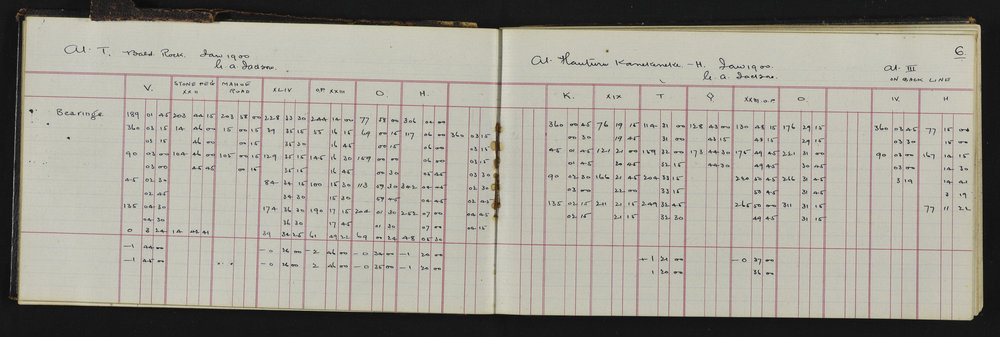 At. T. Bald Rock. Jan 1900
G. A. Jadson.
V. STONE PEG XXII MAHOE ROAD XLIV O.P. XXIII O. H.
Bearings 189 01 45 203 44 15 203 58 00 228 33 30 244 14 00 77 58 00 306 04 00
360 03 15 14 46 00 15 00 15 39 35 15 55 16 15 69 00 15 117 06 00 360 03 15
03 15 46 00 00 15 35 30 16 45 00 15 06 00 03 15
90 03 00 104 46 00 105 00 15 129 35 15 145 16 30 159 00 00 06 00 03 15
03 00 45 45 00 15 35 15 16 45 00 30 05 45 03 30
45 02 30 84 34 15 100 15 30 113 59 30 342 04 45 02 30
02 45 34 30 15 30 59 45 04 45 02 45
135 04 30 174 36 30 190 17 15 204 01 30 252 07 00 04 45
04 30 36 30 17 45 01 30 07 00 04 15
0 3 24 14 02 41 39 34 25 61 49 22 69 00 24 48 05 30
-1 44 00 -0 36 00 -2 46 00 -0 34 00 -1 20 00
-1 45 00 -0 36 00 -2 46 00 -0 35 00 -1 20 00
6.
At. Hauturu Kanekaneke. - H. Jan 1900.
G. A. Jadson.
At. III
ON BACK LINE
K. XIX T Q XXIII O.P. O. IV. H
360 00 45 76 19 15 114 31 00 128 43 00 130 48 15 176 29 15 360 03 45 77 15 00
00 30 19 45 31 00 43 15 48 15 29 15 03 30 15 00
45 01 45 121 21 00 159 32 00 173 44 30 175 49 45 221 31 00 90 03 00 167 14 15
01 45 20 45 32 15 44 30 49 45 30 45 03 00 14 30
90 02 30 166 21 45 204 33 15 220 50 45 266 31 45 3 19 14 41
03 00 22 00 33 15 50 45 31 45 3 19
135 02 15 211 21 15 249 32 45 265 50 00 311 31 15 77 11 22
02 15 21 15 32 30 49 45 31 15
+1 21 00 -0 37 00
1 20 00 36 00